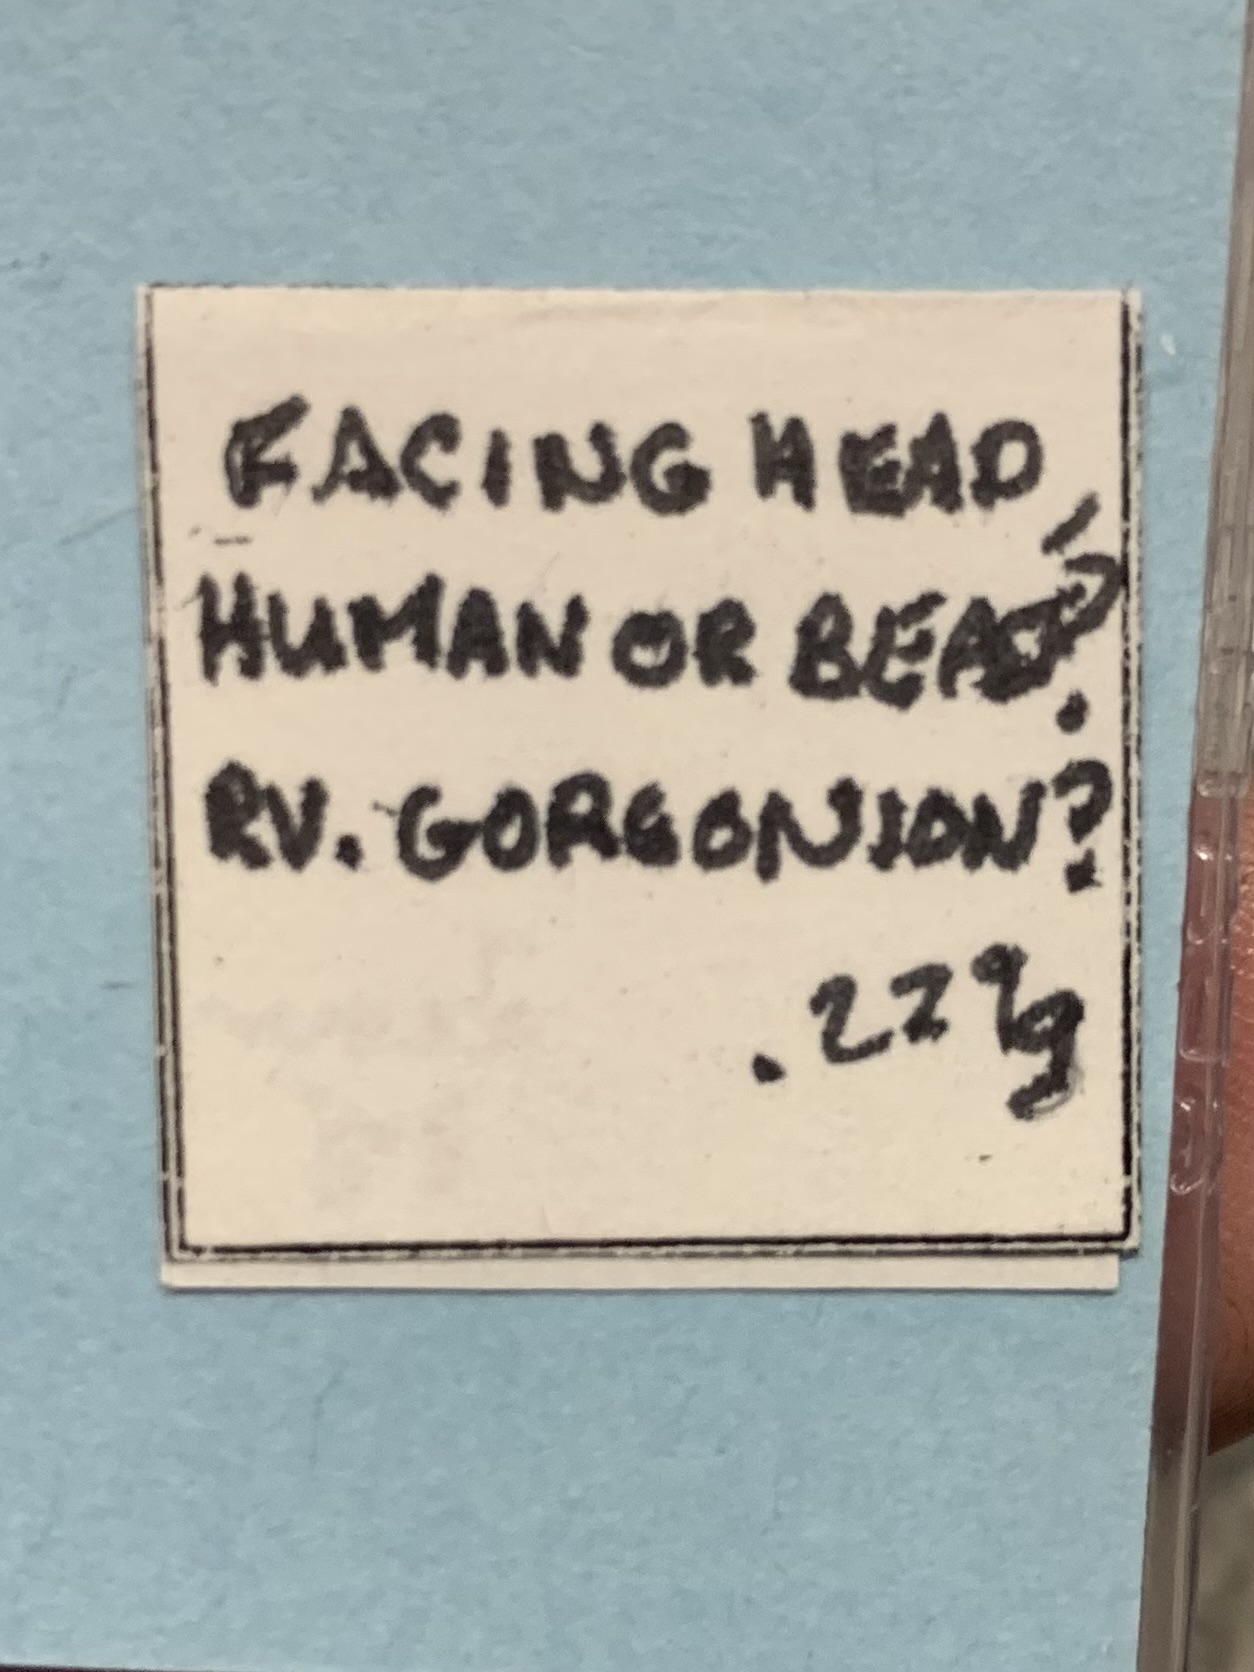 FACING HEAD,
HUMAN OR BEAST?
RV. GORGONION?
.229g